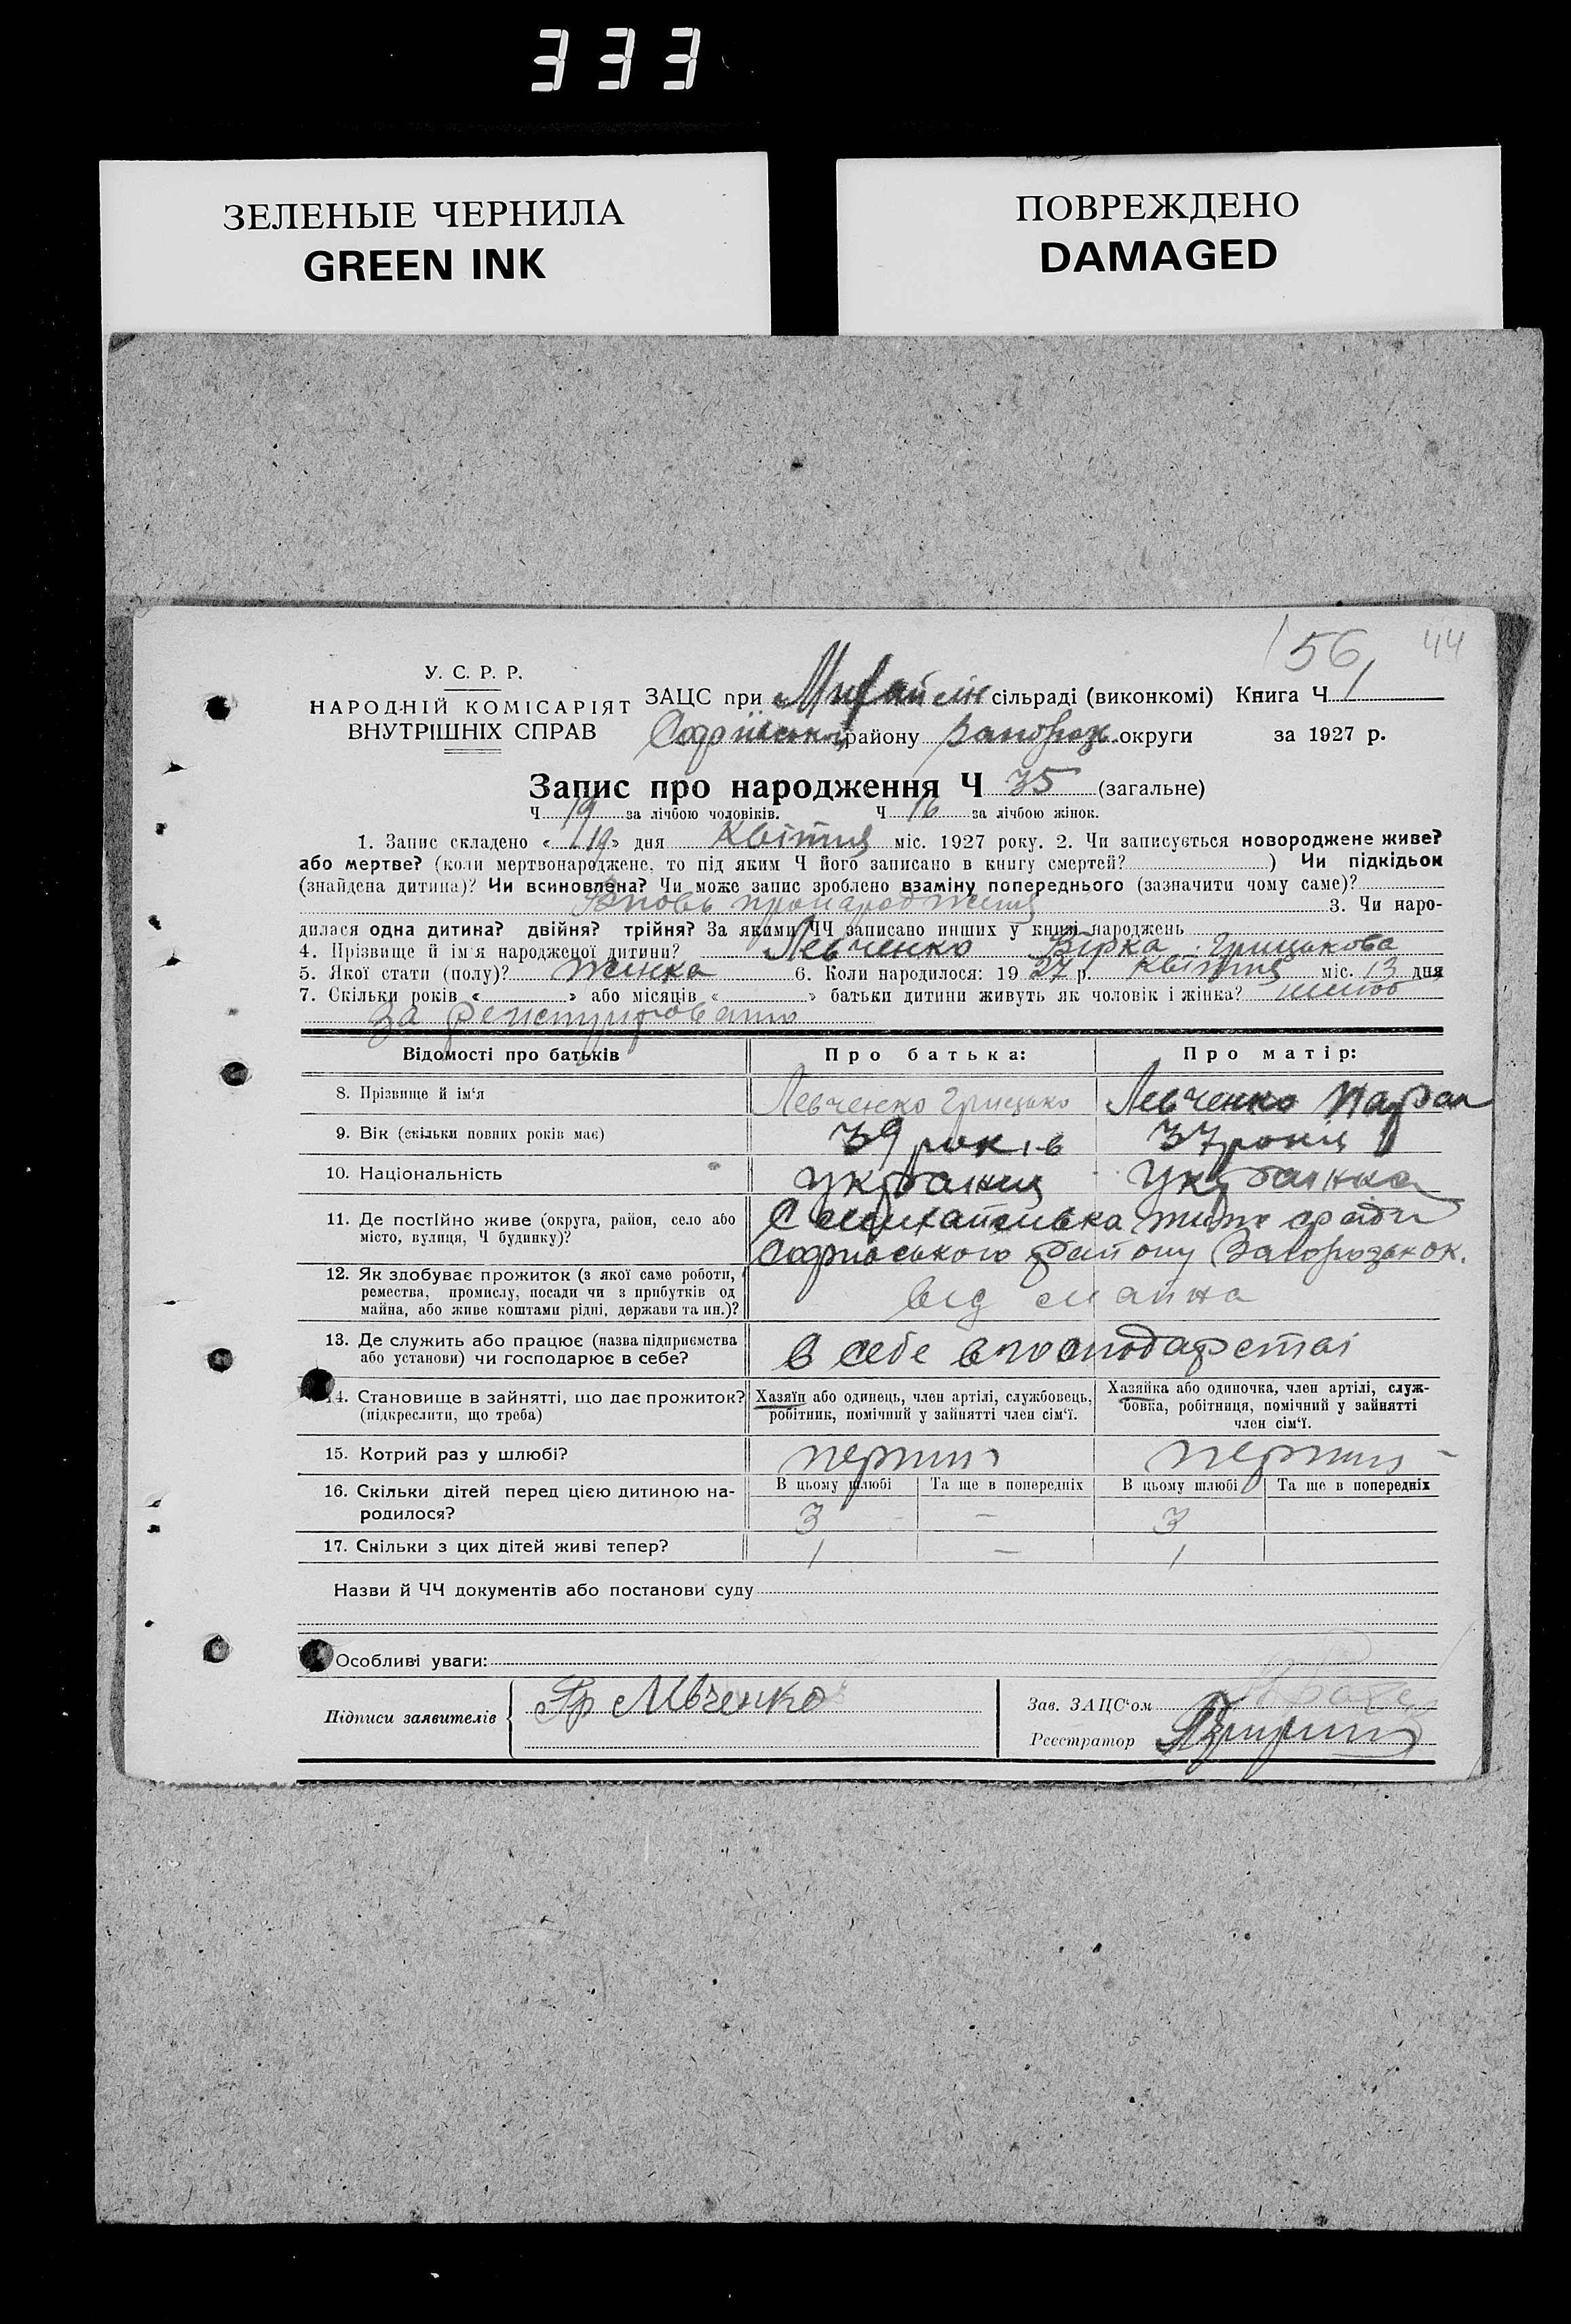 333
ЗЕЛЕНЫЕ ЧЕРНИЛА
GREEN INK
ПОВРЕЖДЕНО
DAMAGED
56 44
У. С. Р. Р.
НАРОДНІЙ КОМІСАРІЯТ
ВНУТРІШНІХ СПРАВ
ЗАЦС при Михайлік сільраді (виконкомі) Книга Ч
району Запорізь округи за 1927 р.
Запис про народження Ч 35 (загальне)
Ч 19 за лічбою чоловіків. Ч 16 за лічбою жінок.
1. Запис складено «19» дня Квітня міс. 1927 року. 2. Чи записується новороджене живе?
або мертве? (коли мертвонароджене, то під яким Ч його записано в книгу смертей? ) Чи підкідьок
(знайдена дитина)? Чи всиновлена? Чи може запис зроблено взаміну попереднього (зазначити чому саме)?
Вновь 3. Чи наро-
дилася одна дитина? двійня? трійня? За якими ЧЧ записано инших у книзі народжень
4. Прізвище й ім'я народженої дитини? Левченко Вірка Грицькова
5. Якої стати (полу)? Жінка 6. Коли народилося: 1927 р. Квітня міс. 13 дня
7. Скільки років « » або місяців « » батьки дитини живуть як чоловік і жінка? шлюб
за
Відомості про батьків
Про батька:
Про матір:
8. Прізвище й ім'я
Левченко Грицько
Левченко Параск
9. Вік (скільки повних років має)
39 років
37 років
10. Національність
Українец
Українка
11. Де постійно живе (округа, район, село або
місто, вулиця, Ч будинку)?
С Михайлівка
району Запорозьк ок.
12. Як здобуває прожиток (з якої саме роботи,
ремества, промислу, посади чи з прибутків од
майна, або живе коштами рідні, держави та ин.)?
від майна
13. Де служить або працює (назва підприємства
або установи) чи господарює в себе?
в себе в господарстві
14. Становище в зайнятті, що дає прожиток?
(підкреслити, що треба)
Хазяїн або одинець, член артілі, службовець,
робітник, помічний у зайнятті член сім'ї.
Хазяйка або одиночка, член артілі, служ-
бовка, робітниця, помічний у зайнятті
член сім'ї.
15. Котрий раз у шлюбі?
перший
перший
16. Скільки дітей перед цією дитиною на-
родилося?
В цьому шлюбі Та ще в попередніх В цьому шлюбі Та ще в попередніх
3 - 3
17. Скільки з цих дітей живі тепер?
1 - 1
Назви й ЧЧ документів або постанови суду
Особливі уваги:
Підписи заявителів
Гр Левченко
Зав. ЗАЦС'ом
Реєстратор